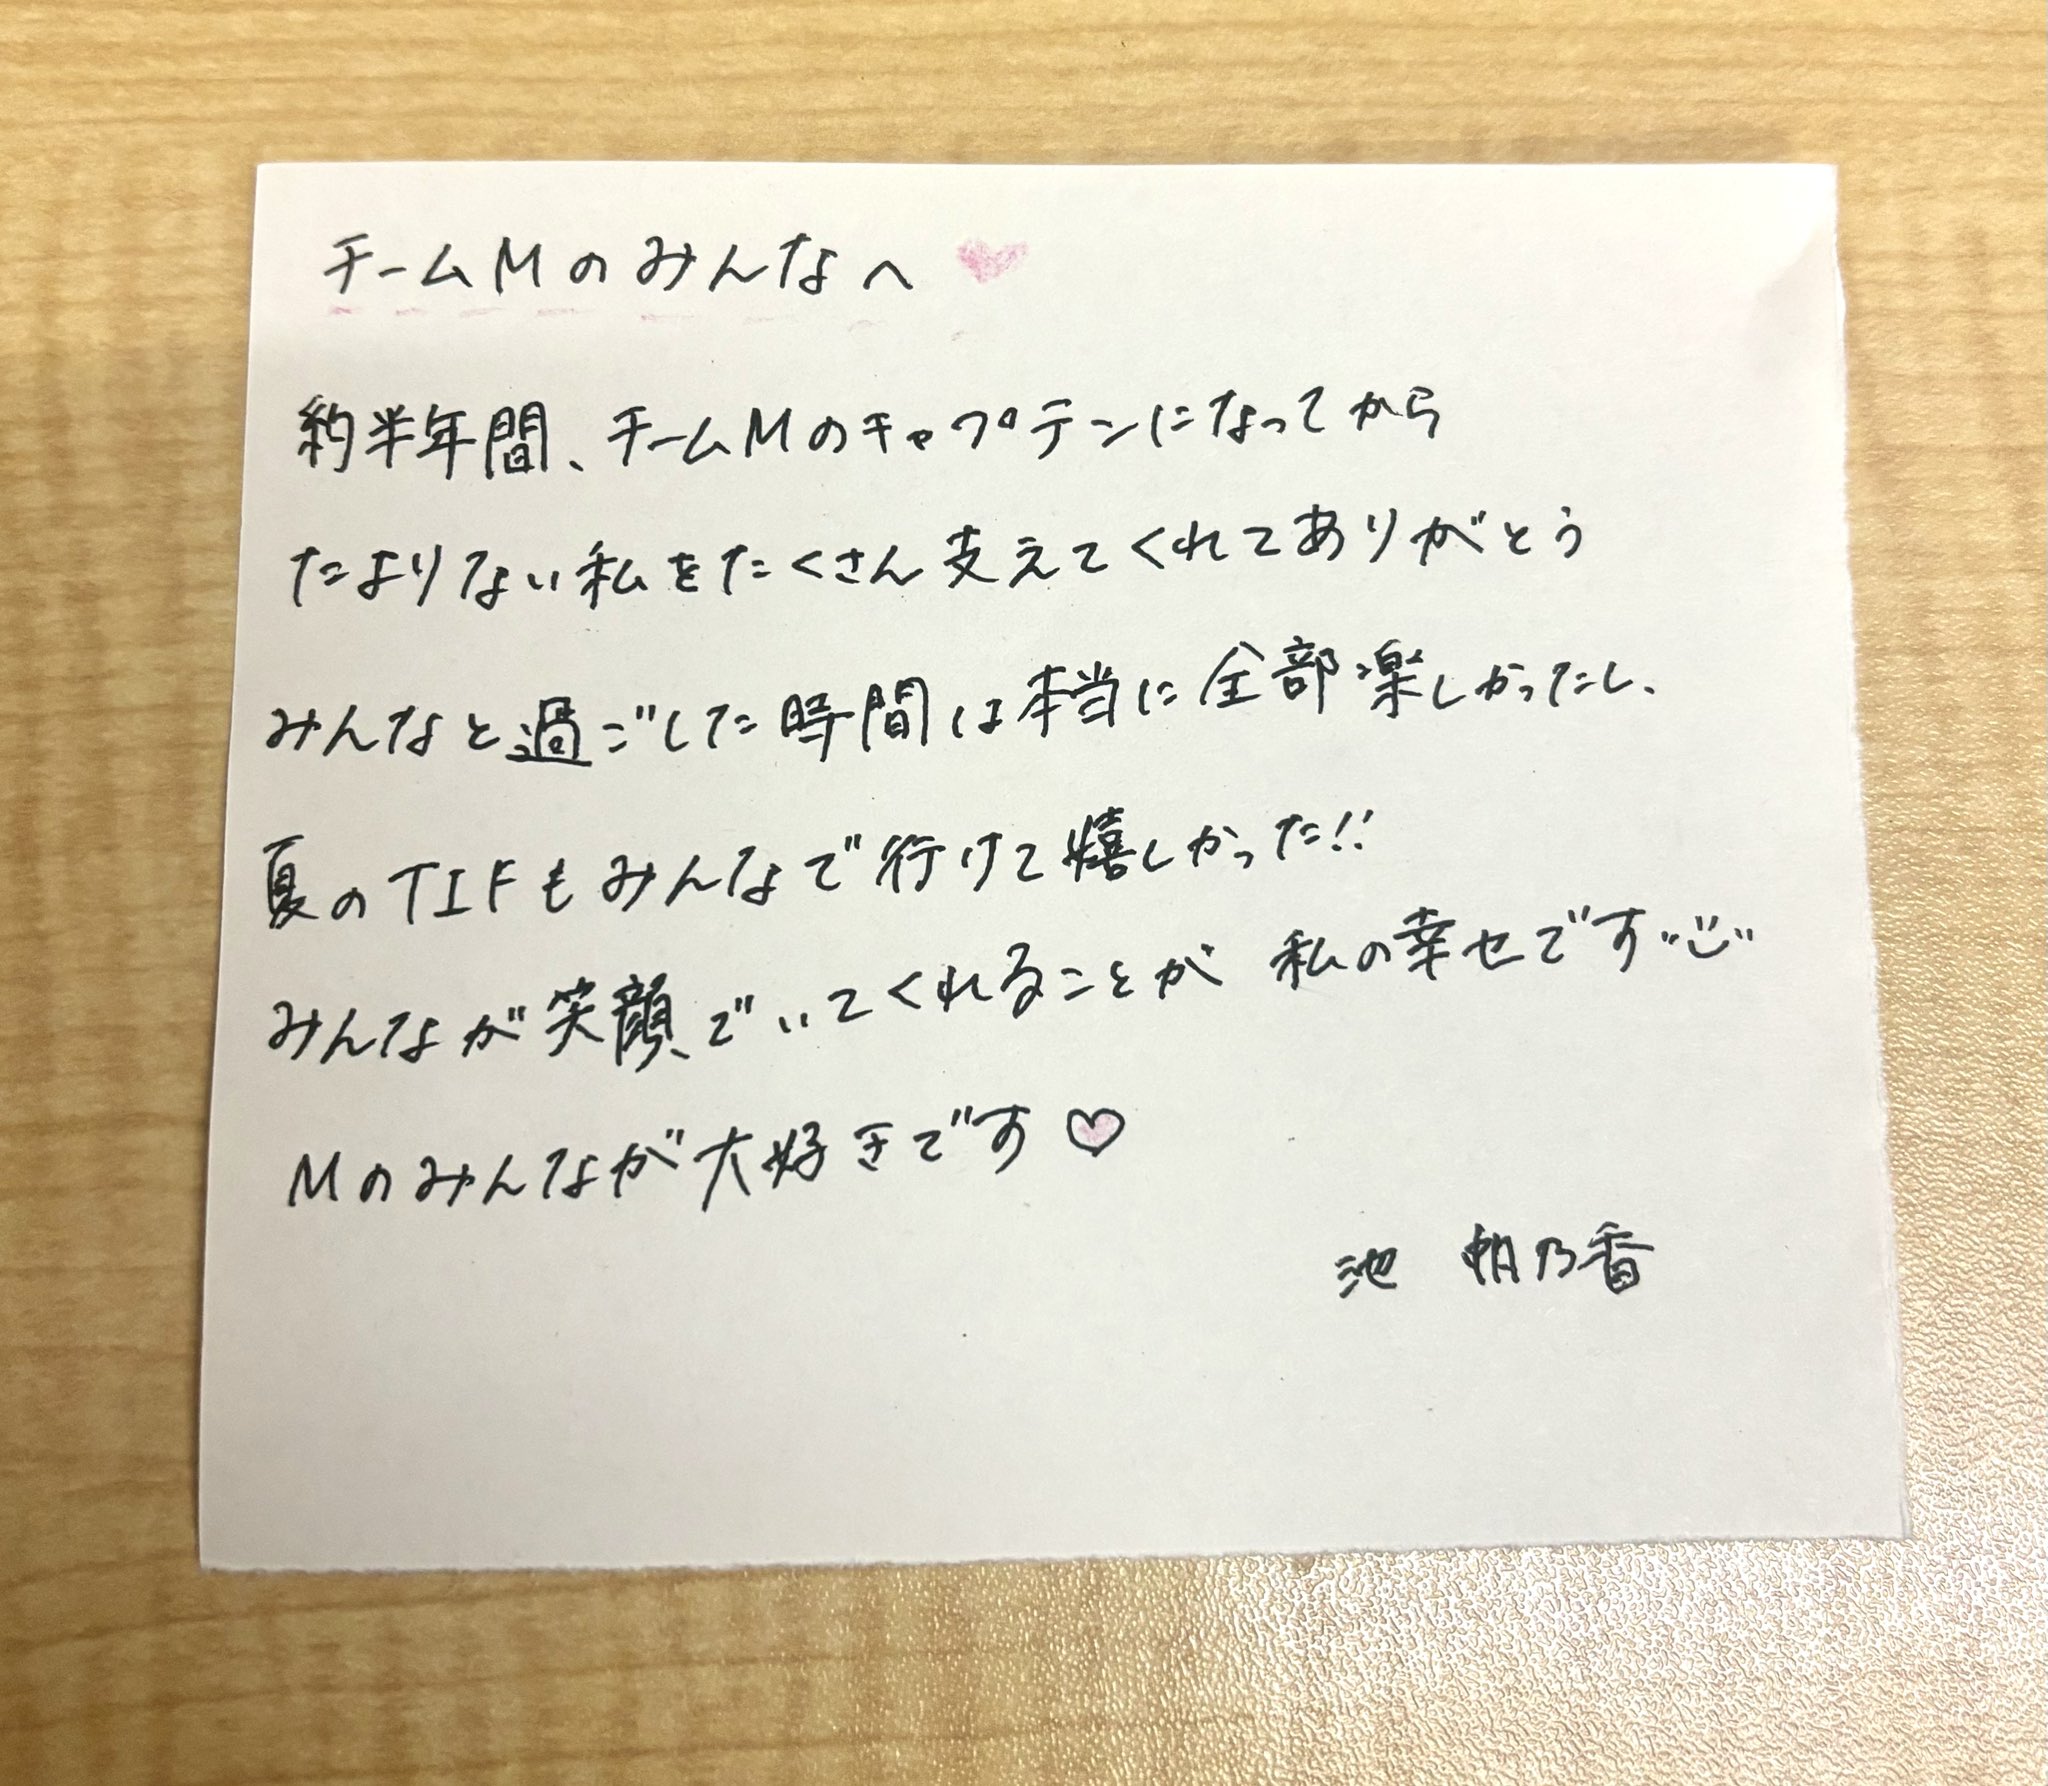 チームMのみんなへ♡
約半年間、チームMのキャプテンになってから
たよりない私をたくさん支えてくれてありがとう
みんなと過ごした時間は本当に全部楽しかったし、
夏のTIFもみんなで行けて嬉しかった!!
みんなが笑顔でいてくれることが 私の幸せです
Mのみんなが大好きです♡
池 帆乃香